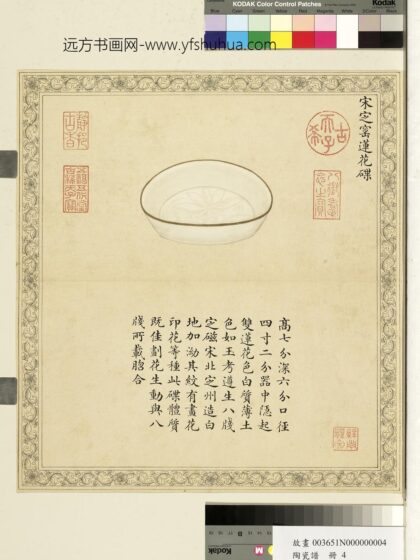 KODAK Color Control Patches
Blue Cyan Green Yellow Red Magenta White 3/Color Black
远方书画网-www.yfshuhua.com
宋定窰蓮花碟
古希天子
八徵耄念之寶
靜挹古香
高七分深六分口徑
四寸二分器中隱起
雙蓮花色白質薄土
色如玉考遵生八牋
定磁宋北定州造白
地加泑其紋有畫花
印花等種此碟體質
既佳劃花生動與八
牋所載脗合
故畫 003651N000000004
陶瓷譜 冊 4